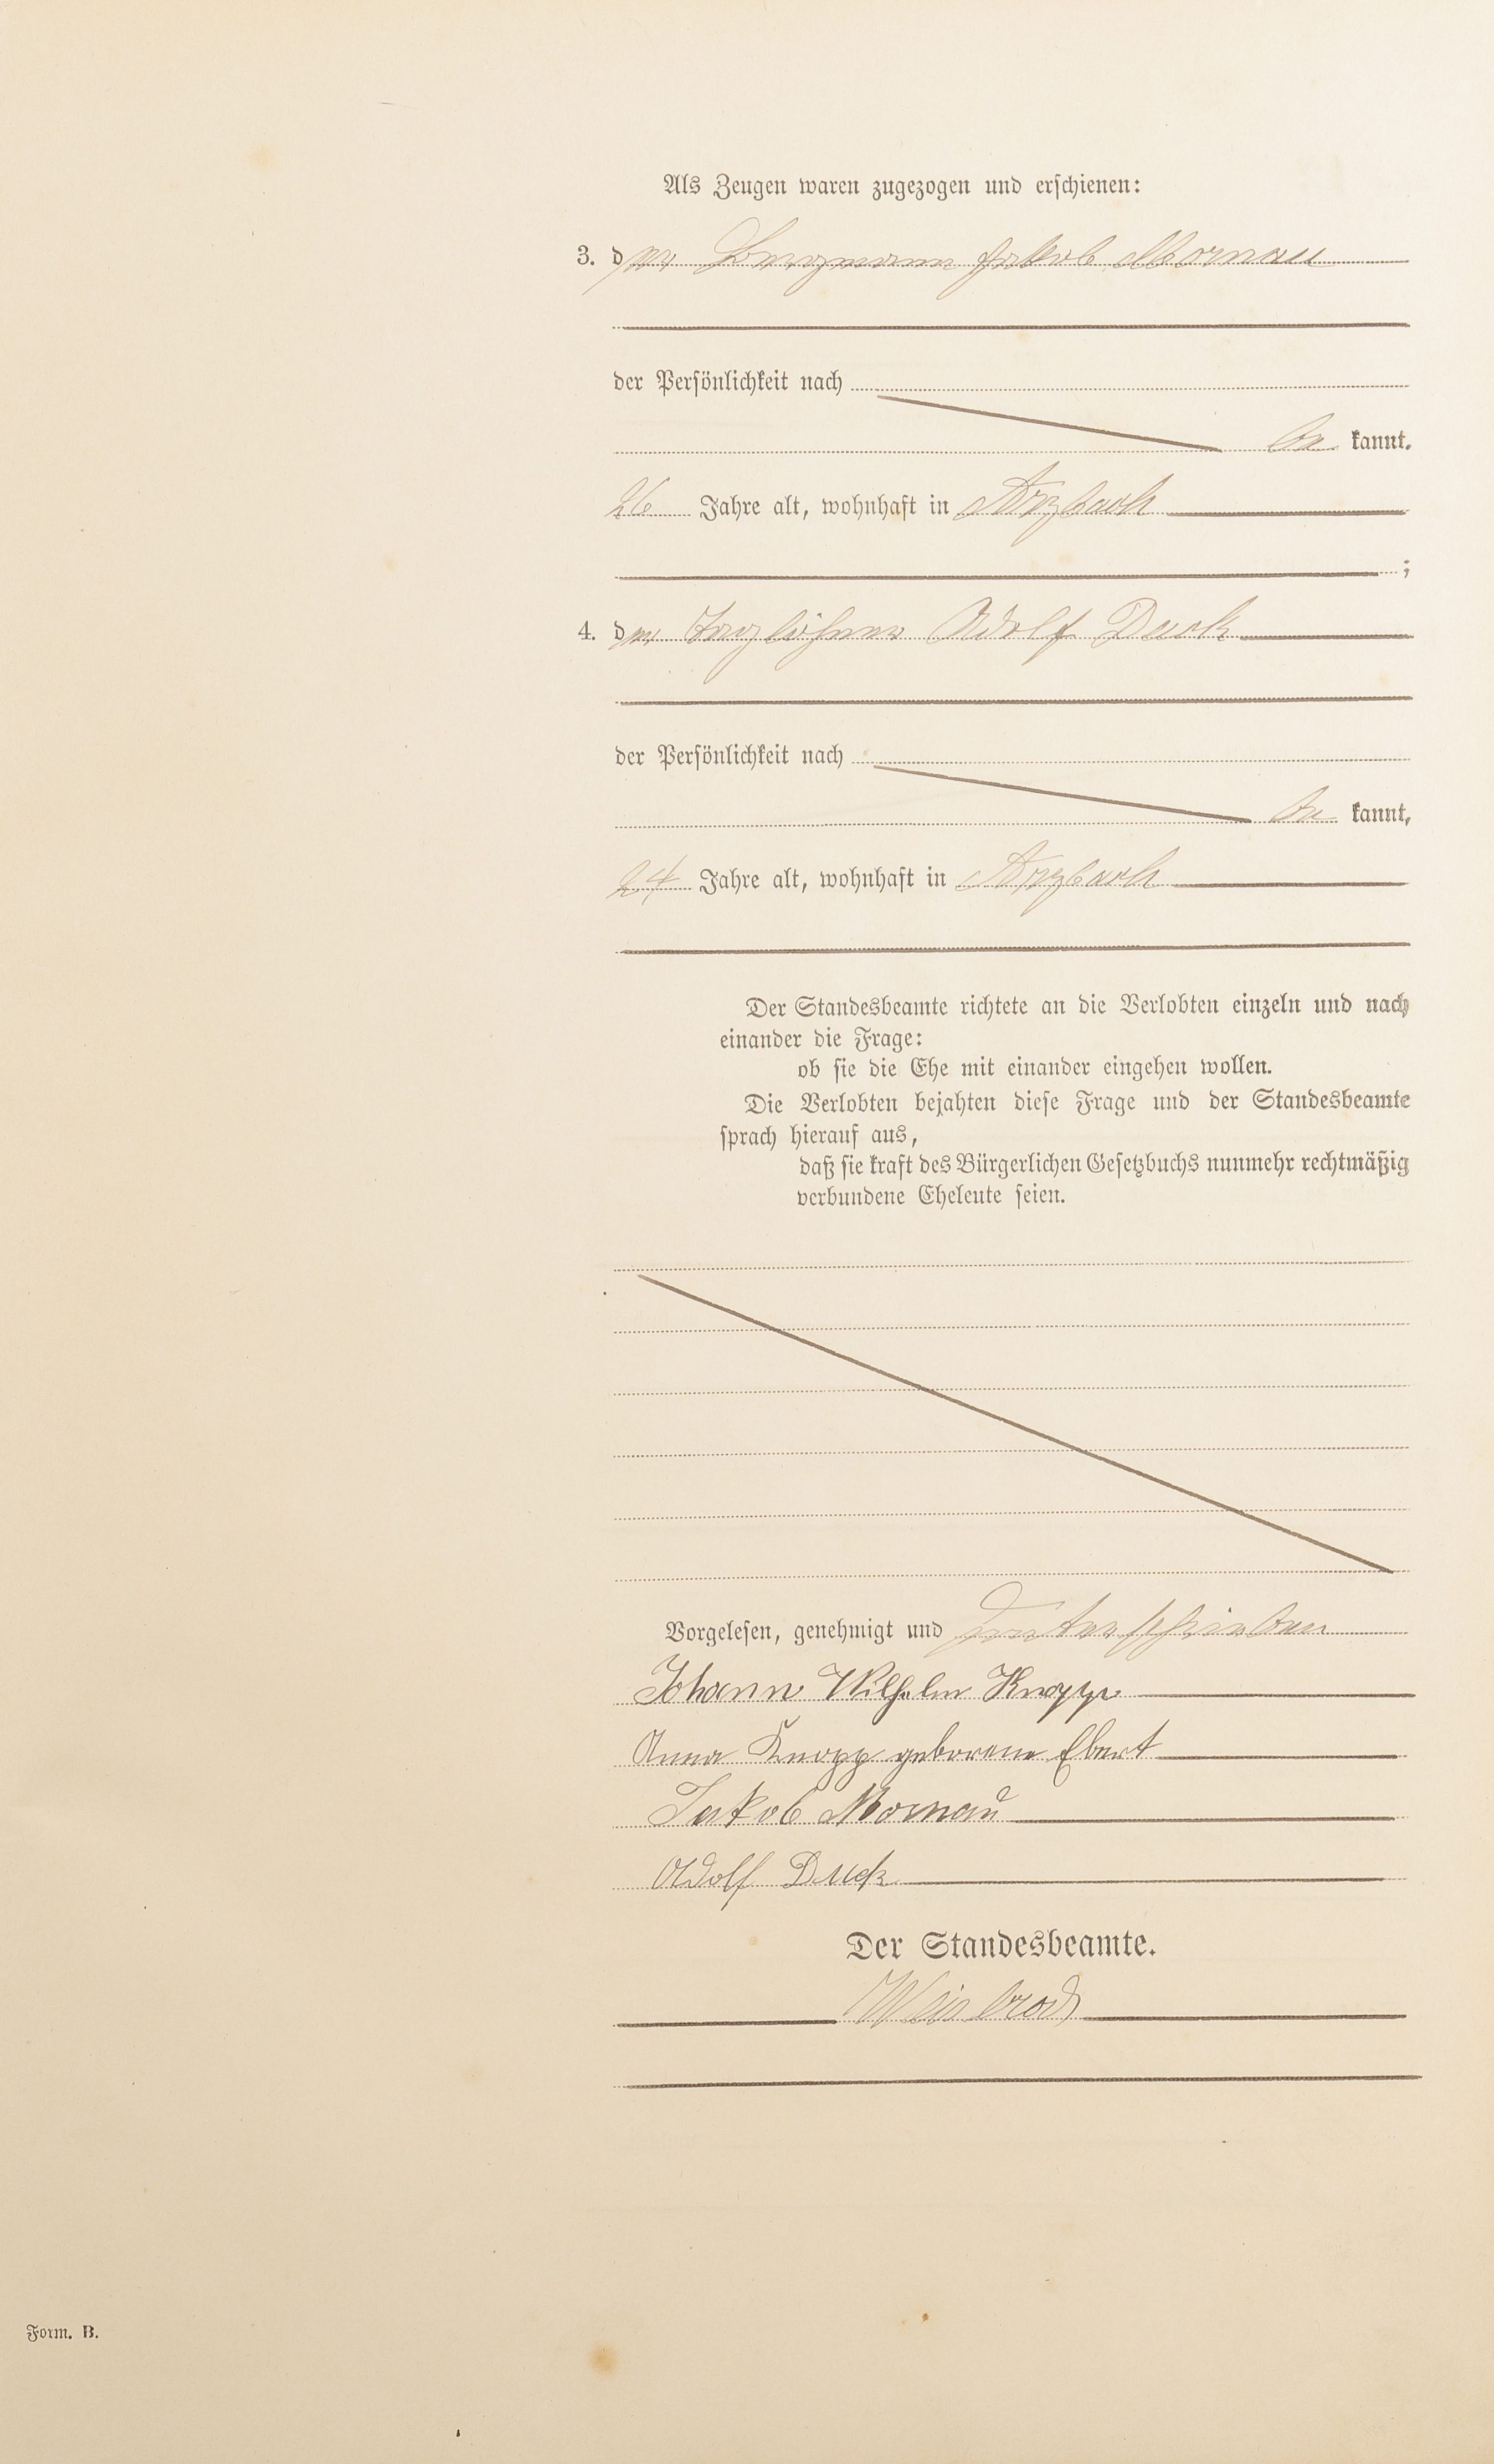 Als Zeugen waren zugezogen und erschienen:
3. der Bergmann Jakob Mornau
der Persönlichkeit nach
be kannt.
26 Jahre alt, wohnhaft in Arzbach
;
4. der Taglöhner Adolf Duck
der Persönlichkeit nach
be kannt,
24 Jahre alt, wohnhaft in Arzbach
Der Standesbeamte richtete an die Verlobten einzeln und nach
einander die Frage:
ob sie die Ehe mit einander eingehen wollen.
Die Verlobten bejahten diese Frage und der Standesbeamte
sprach hierauf aus,
daß sie kraft des Bürgerlichen Gesetzbuchs nunmehr rechtmäßig
verbundene Eheleute seien.
Vorgelesen, genehmigt und unterschrieben
Johann Wilhelm Knopp
Anna Knopp geborene Ebert
Jakob Mornau
Adolf Duck
Der Standesbeamte.
Weisbrod
Form. B.